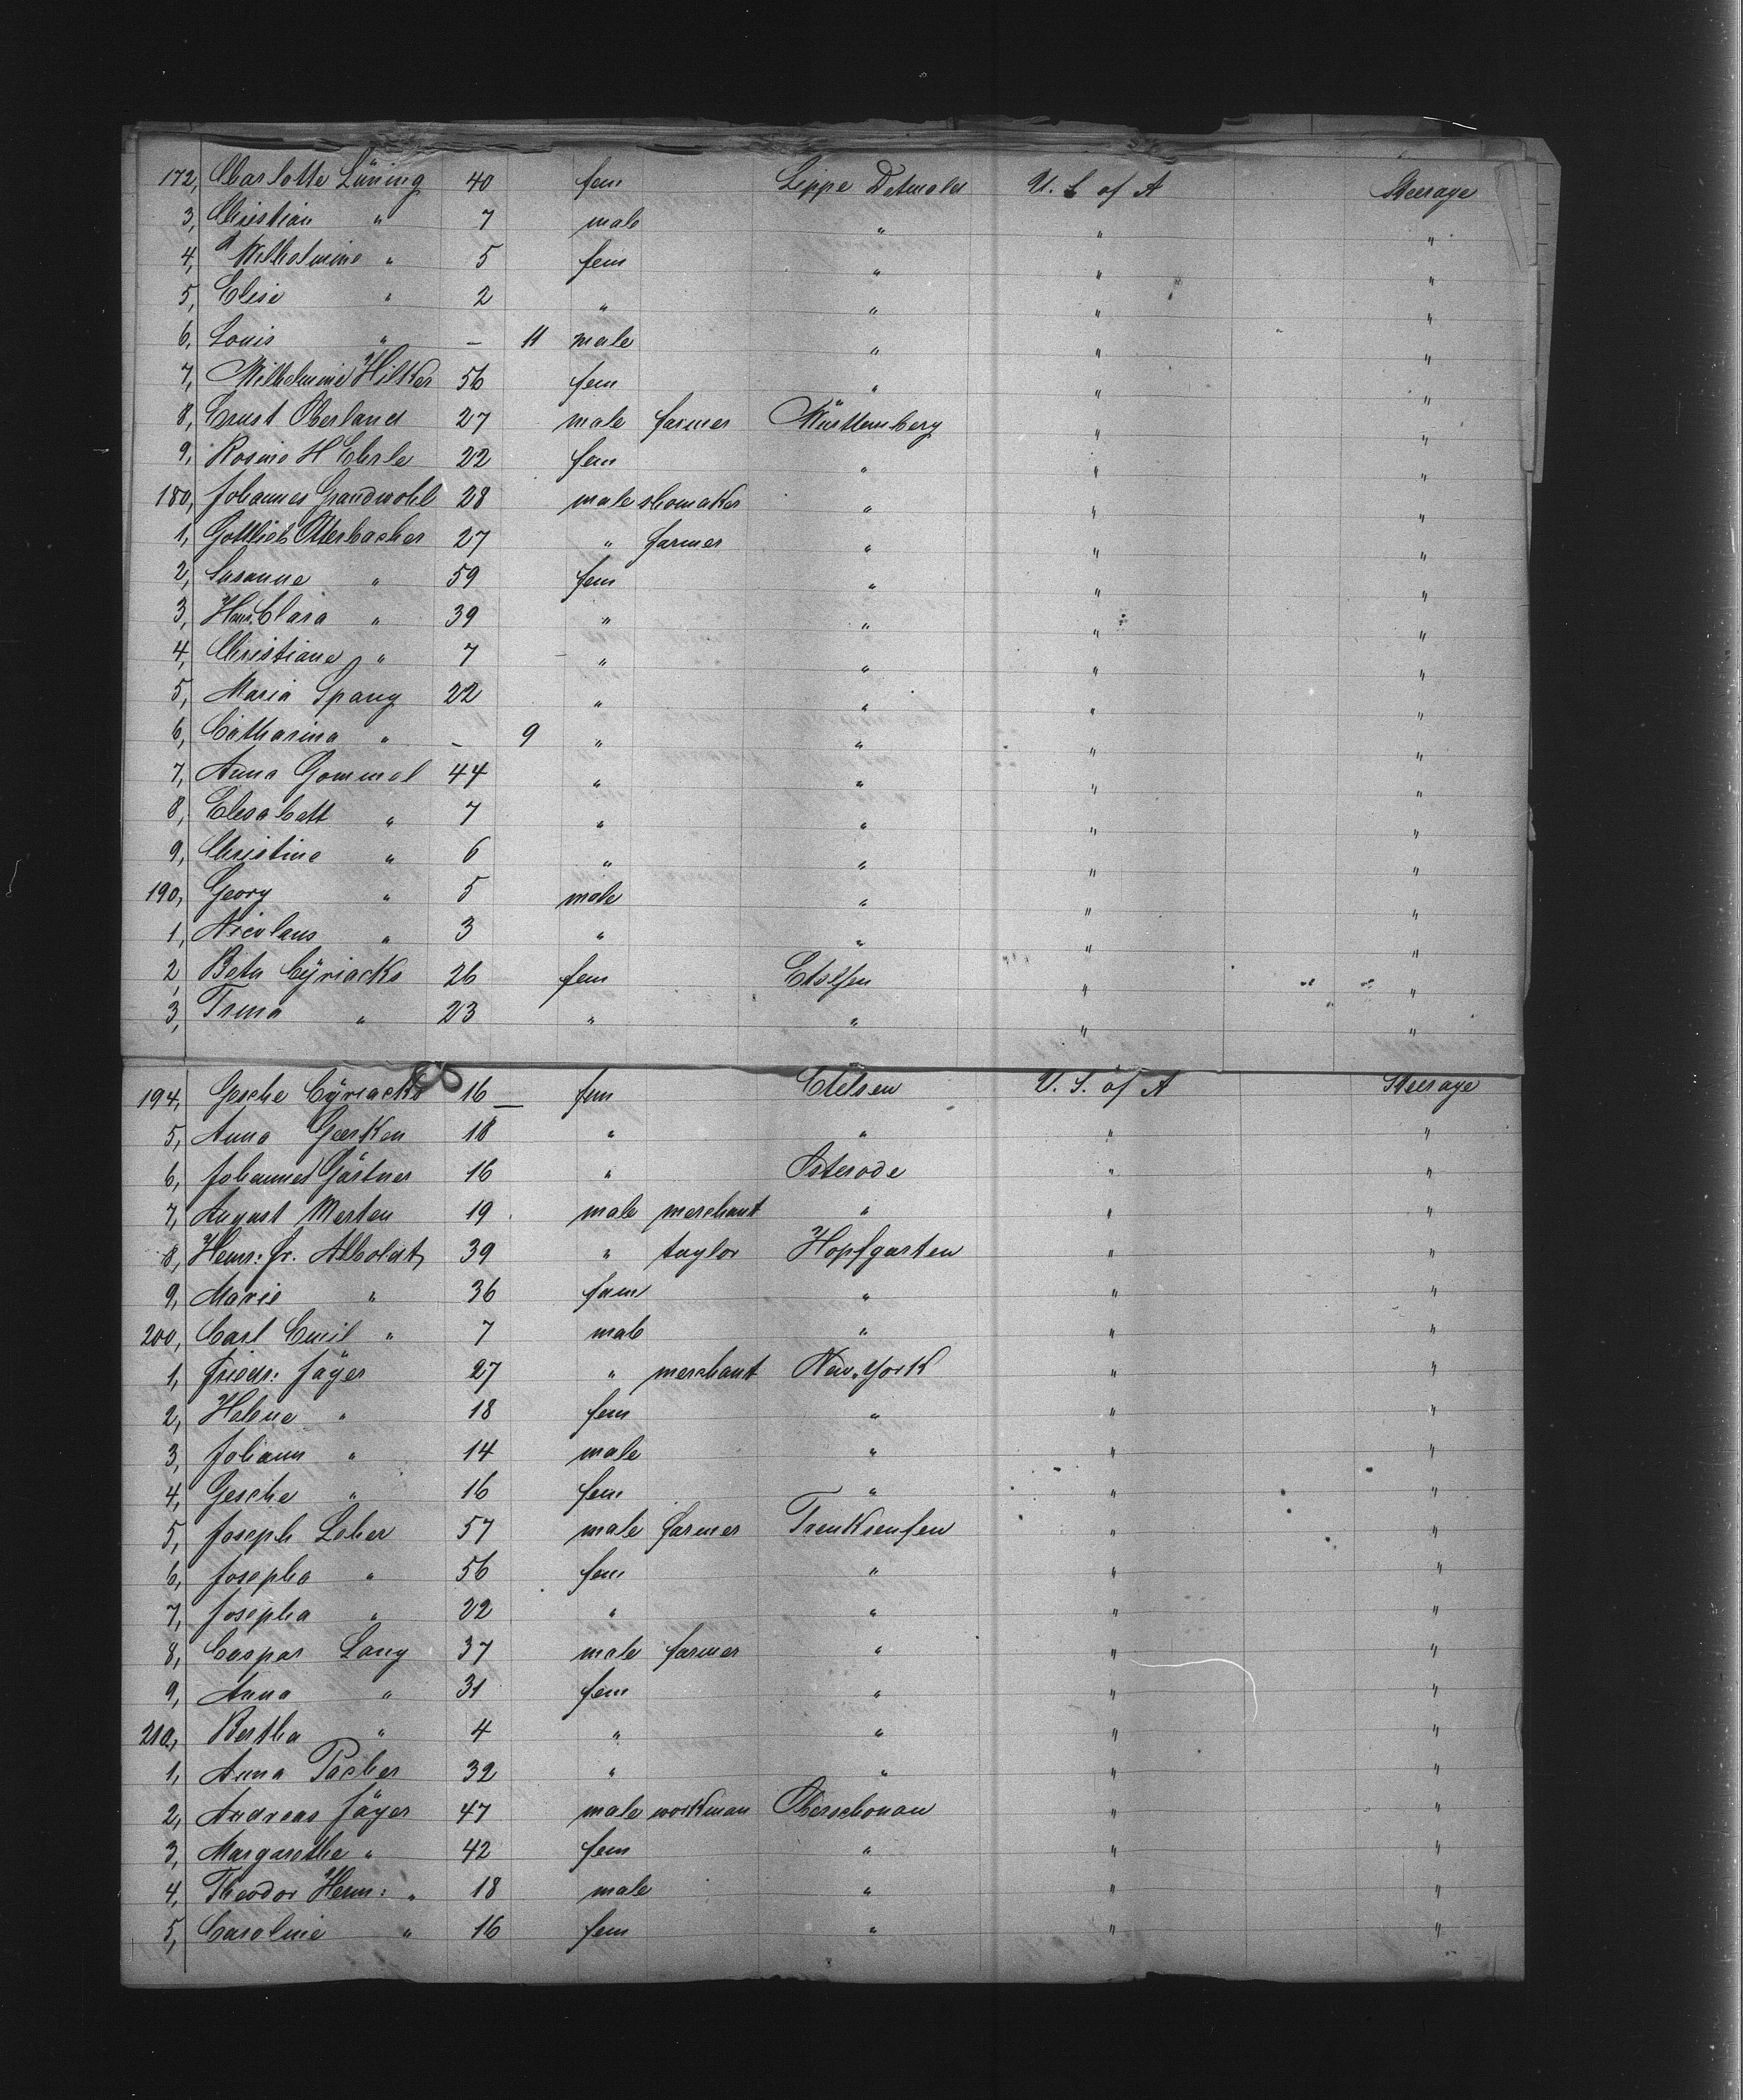 172, Charlotte Lüning 40 fem Lippe Detmold U. S of A Steerage
3, Christian " 7 male " " "
4, Wilhelmine " 5 fem " " "
5, Elise " 2 " " " "
6, Louis " – 11 male " " "
7, Wilhelmine Hilker 56 fem " " "
8, Ernst Oberland 27 male farmer Württemberg " "
9, Rosine H Eberle 22 fem " " "
180, Johannes Grandwohl 28 male shomaker " " "
1, Gottlieb Otterbacher 27 " farmer " " "
2, Susanne " 59 fem " " "
3, Han. Clara " 39 " " " "
4, Christiane " 7 " " " "
5, Maria Spang 22 " " " "
6, Catharina " – 9 " " " "
7, Anna Gommel 44 " " " "
8, Elesabatt " 7 " " " "
9, Christine " 6 " " " "
190, Georg " 5 male " " "
1, Nicolaus " 3 " " " "
2, Beta Cÿriacks 26 fem Etelsen " "
3, Trina " 23 " " " "
194, Gesche Cÿriacks 16 fem Etelsen U. S. of A Steerage
5, Anna Geerken 18 " " " "
6, Johannes Gärtner 16 " Osterode " "
7, August Merten 19 male merchant " " "
8, Henr: Fr. Alboldt 39 " taylor Hopfgarten " "
9, Marie " 36 fem " " "
200, Carl Emil " 7 male " " "
1, Friedr: Jäger 27 " merchant New-York " "
2, Helene " 18 fem " " "
3, Johann " 14 male " " "
4, Gesche " 16 fem " " "
5, Joseph Leber 57 male farmer " "
6, Josepha " 56 fem " " "
7, Josepha " 22 " " " "
8, Caspar Lang 37 male farmer " " "
9, Anna " 31 fem " " "
210, Bertha " 4 " " " "
1, Anna Pacher 32 " " " "
2, Andreas Jäger 47 male workman Oberschonau " "
3, Margarethe " 42 fem " " "
4, Theodor Herm: " 18 male " " "
5, Caroline " 16 fem " " "